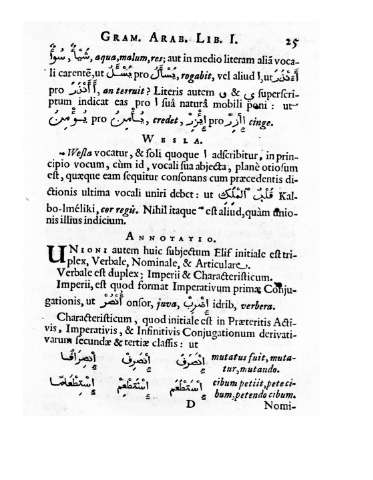 GRAM. ARAB. LIB. I. 25
aqua, malum, res; aut in medio literam aliâ voca-
li carentē, ut يَسْأَلُ pro rogabit, vel aliud ا, ut أَأَنْذَرَ
pro an terruit? Literis autem و & ى superscri-
ptum indicat eas pro ا suâ naturâ mobili poni: ut
يُؤْمِنُ pro يُأْمِنُ credet, pro cinge.
WESLA.
Wesla vocatur, & soli quoque ا adscribitur, in prin-
cipio vocum, cùm id, vocali sua abjecta, planè otiosum
est, quæque eam sequitur consonans cum præcedentis di-
ctionis ultima vocali uniri debet: ut قَلْبُ ٱلْمَلِكِ Kal-
bo-lméliki, cor regis. Nihil itaque est aliud, quàm unio-
nis illius indicium.
ANNOTATIO.
UNIONI autem huic subjectum Elif initiale est tri-
plex, Verbale, Nominale, & Articulare.
Verbale est duplex; Imperii & Characteristicum.
Imperii, est quod format Imperativum primæ Conju-
gationis, ut أُنْصُرْ onsor, juva, إِضْرِبْ idrib, verbera.
Characteristicum, quod initiale est in Præteritis Acti-
vis, Imperativis, & Infinitivis Conjugationum derivati-
varum secundæ & tertiæ classis: ut
إِنْصَرَفَ إِنْصَرِفْ إِنْصِرَافًا mutatus fuit, muta-
tur, mutando.
إِسْتَطْعَمَ إِسْتَطْعِمْ إِسْتِطْعَامًا cibum petiit, pete ci-
bum, petendo cibum.
D Nomi-